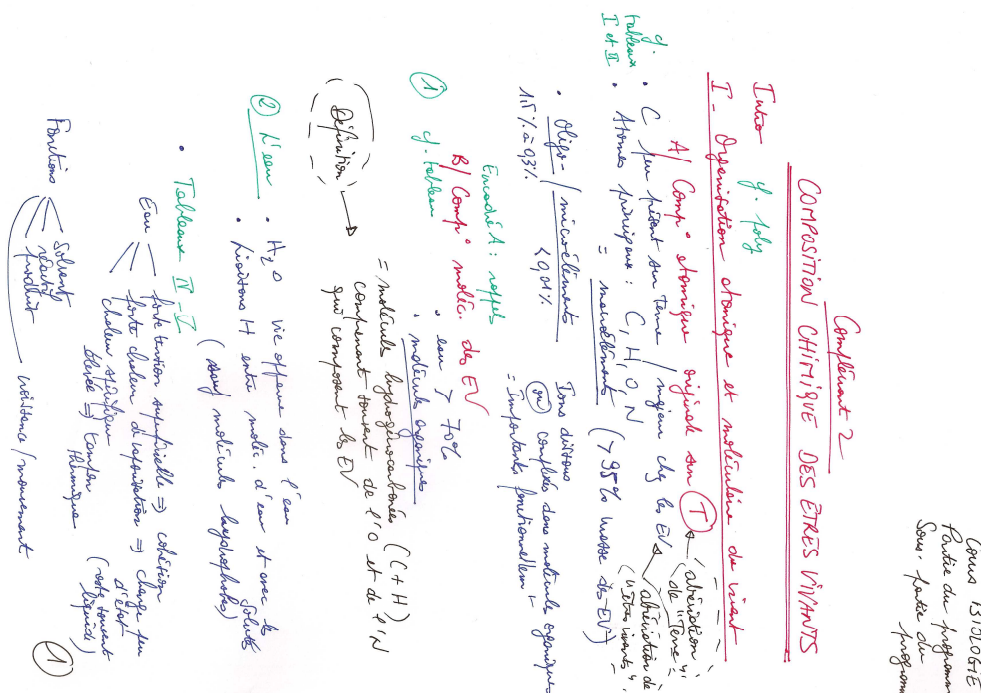 Cours BIOLOGIE
Partie du programme
Sous-partie du
Complément 2
COMPOSITION CHIMIQUE DES ETRES VIVANTS
Intro cf. poly
I - Organisation atomique et moléculaire du vivant
A/ Comp° atomique originale sur T
(abréviation de "Terre")
cf. tableaux I et II
• C peu présent sur Terre / majeur chez les EV
(abréviation de "êtres vivants")
• Atomes principaux : C, H, O, N
= macroéléments (> 95% masse des EV)
• Oligo- / microéléments
< 0,01%
Ions dissous
ou complexés dans molécules organiques
= importants fonctionnellement
Encadré A : rappels
B/ Comp° moléc. des EV
① cf. tableau
• eau > 70%
• molécules organiques
Définition →
= molécules hydrogénocarbonées (C + H)
comprenant souvent de l'O et de l'N
qui composent les EV
② L'eau
• H₂O vie apparue dans l'eau
Liaisons H entre moléc. d'eau et avec les solutés
(sauf molécules hydrophobes)
• Tableaux IV - V
Eau
forte tension superficielle ⇒ cohésion
forte chaleur de vaporisation ⇒ change peu d'état
(reste souvent liquide)
chaleur spécifique élevée ⇒ tampon thermique
Fonctions
Solvant
réactif
produit
croissance / mouvement
①